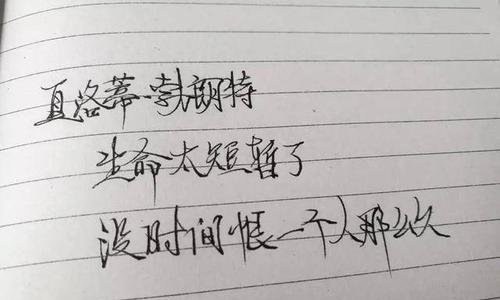 夏洛蒂·勃朗特
生命太短暂了
没时间恨一个人那么久